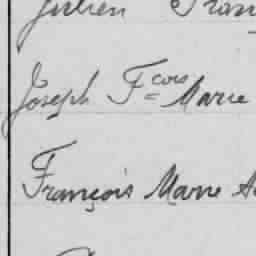 Julien Fran
Joseph F.cois Marie
François Marie A